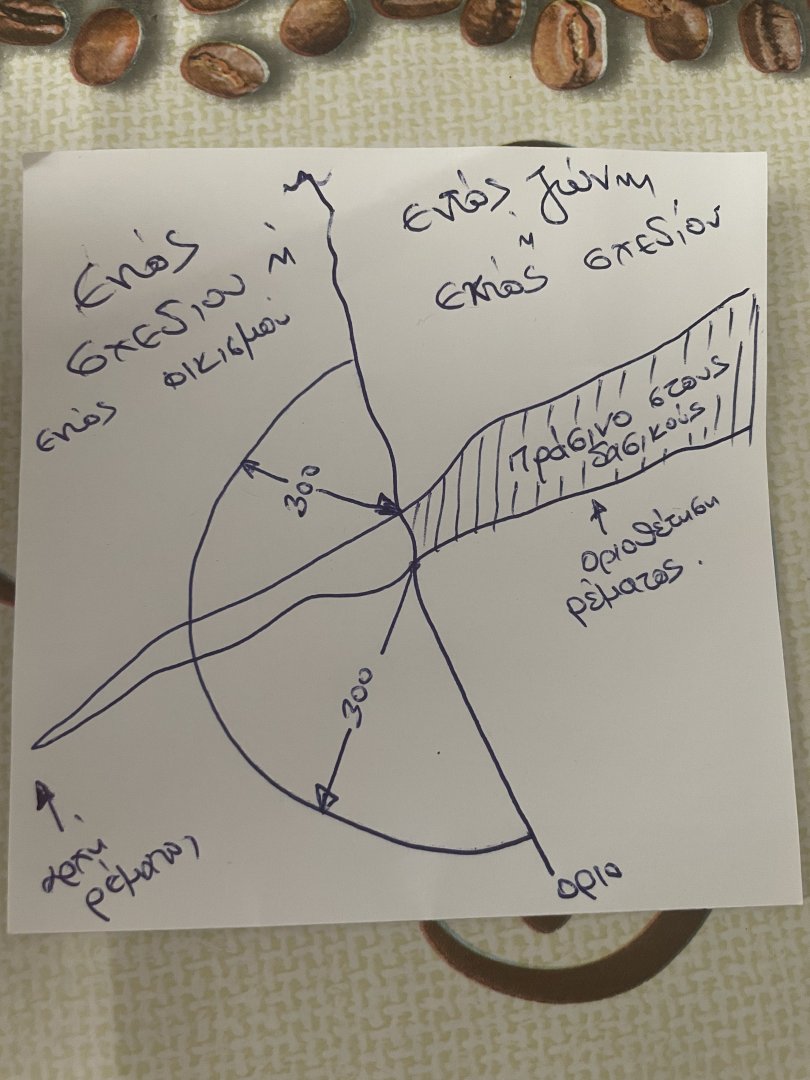 εντός
σχεδίου ή
εντός οικισμού
εντός ζώνη
ή
εκτός σχεδίου
πράσινο στους
δασικούς
οριοθέτηση
ρέματος.
300
300
αρχή
ρέματος
οριο